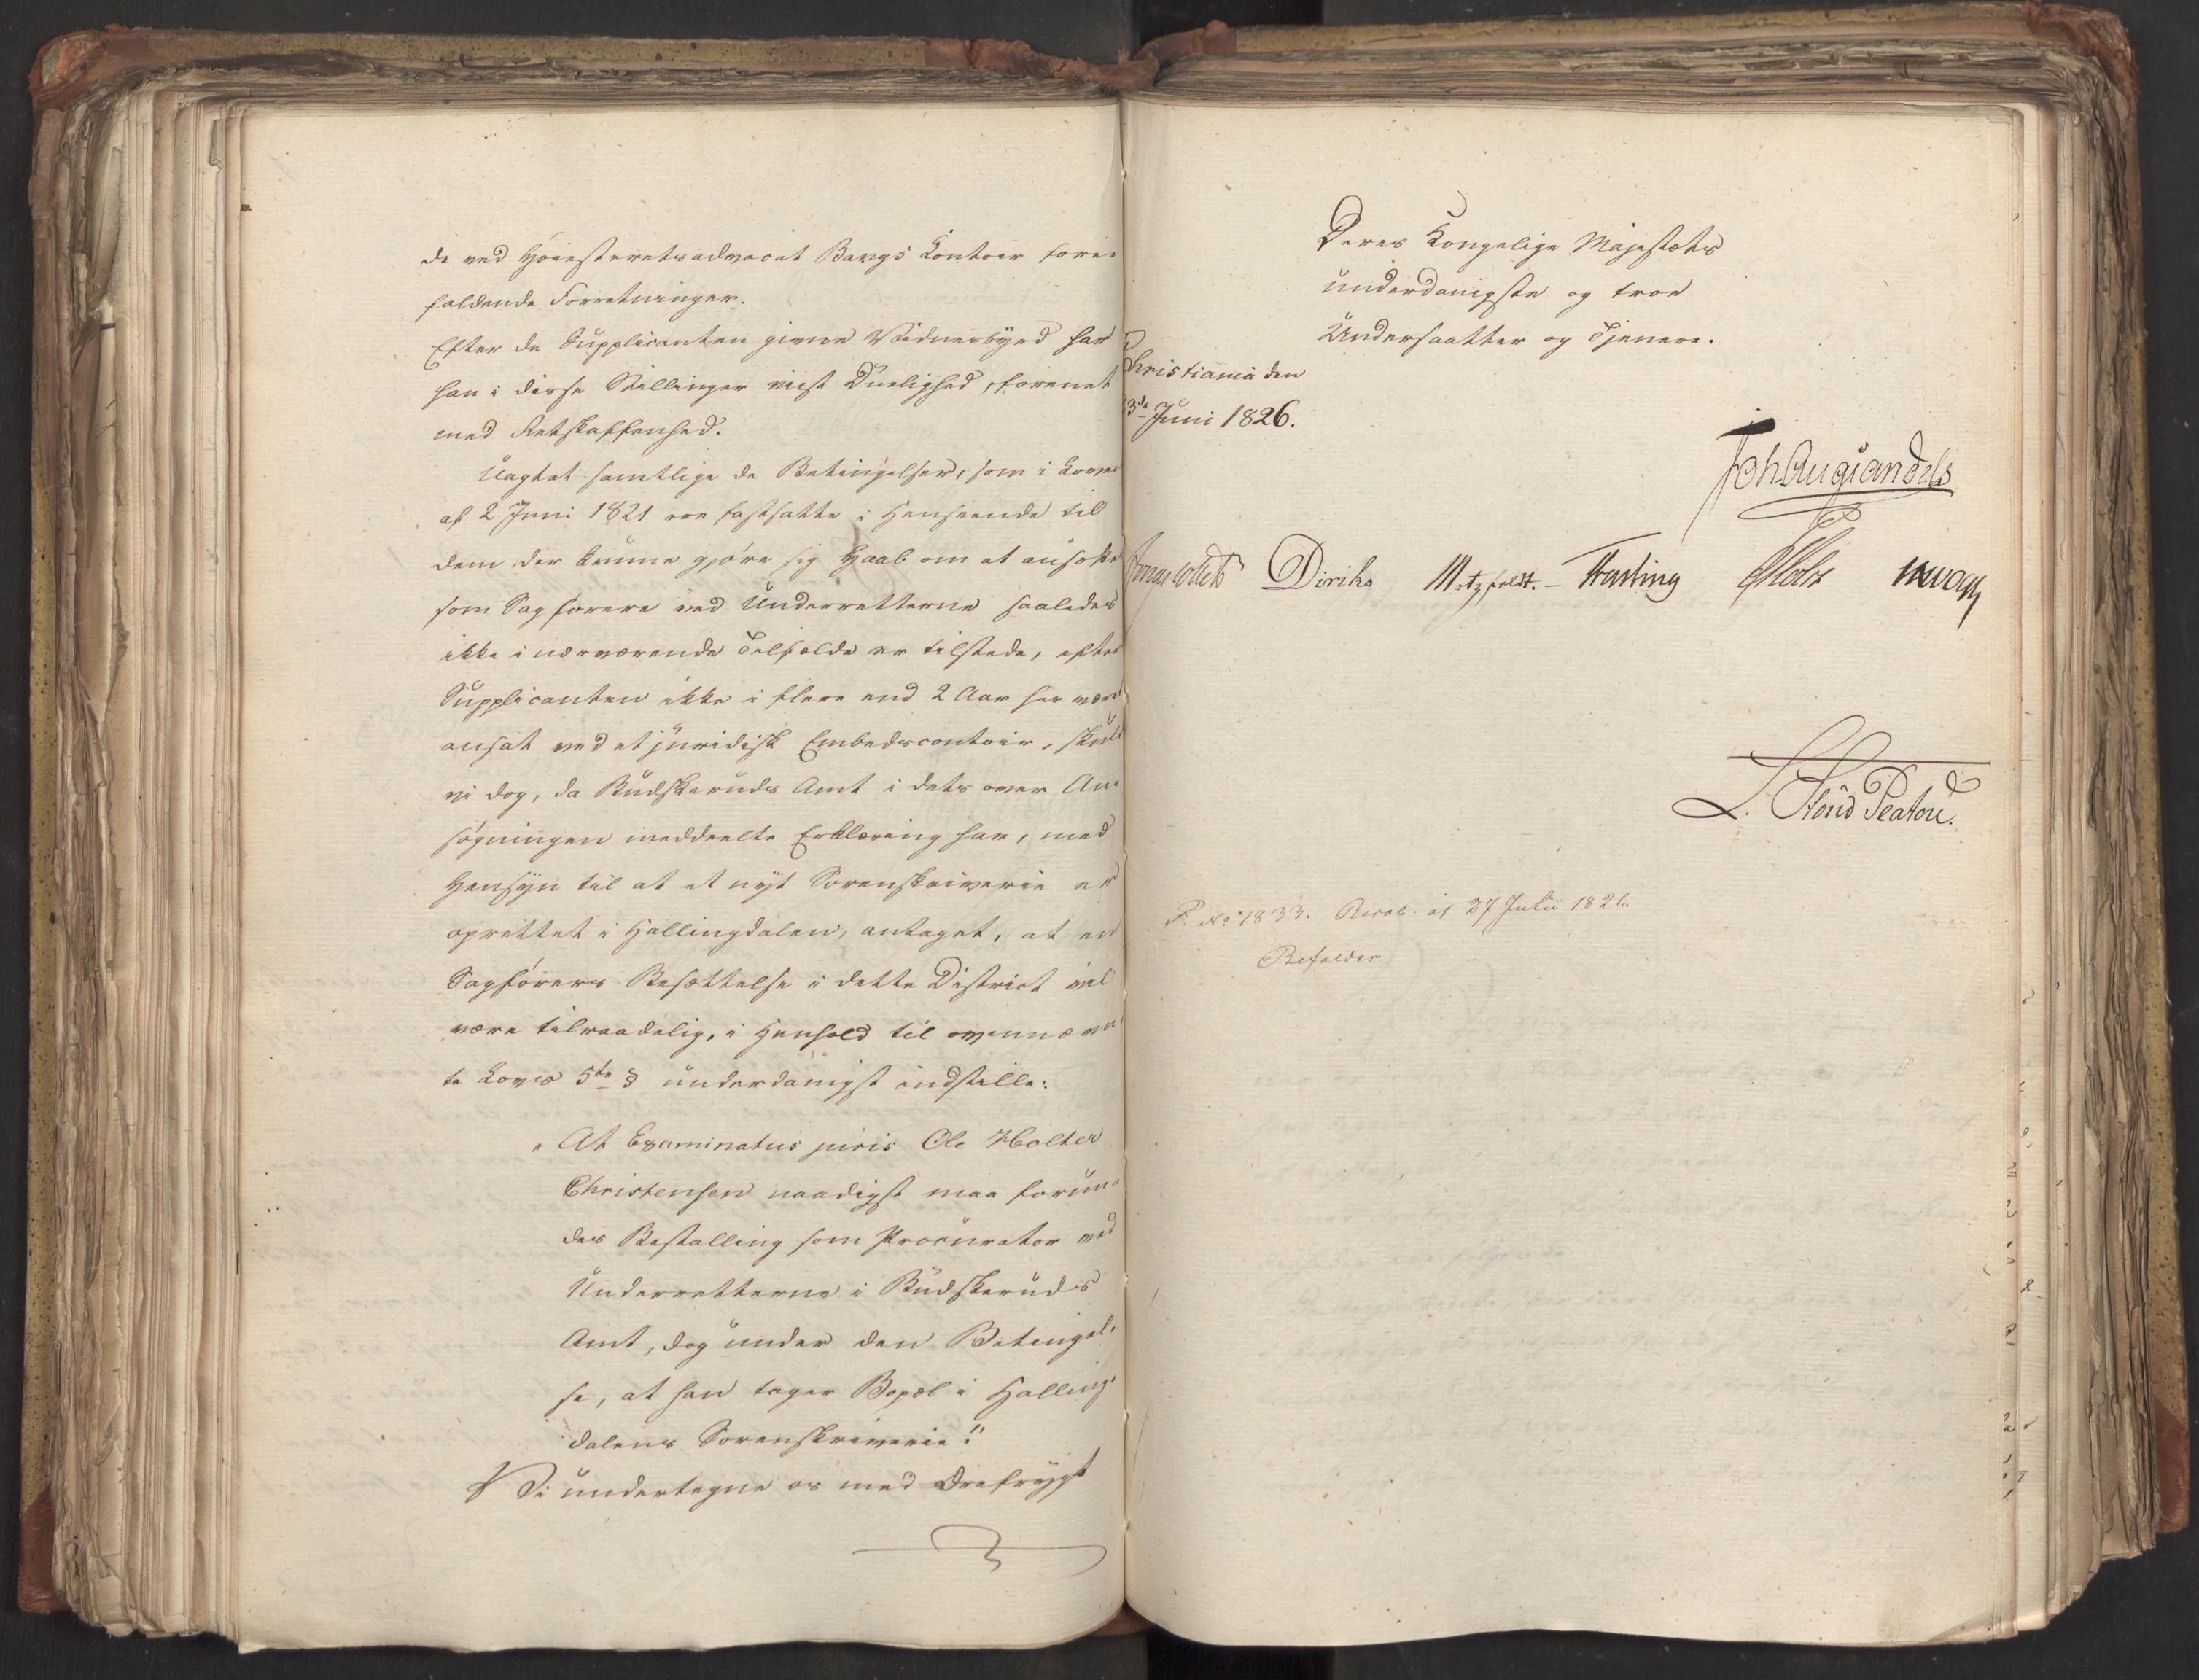 de ved Høiesteretsadvocat Bangs Contoir fore-
faldende Forretninger.
Efter de Supplicanten givne Vidnesbyrd har
han i disse Stillinger viist Duelighed, forenet
med Retskaffenhed.
Uagtet samtlige de Betingelser, som i Loven
af 2 Juni 1821 ere fastsatte i Henseende til
dem der kunne gjøre sig Haab om at ansættes
som Sagførere ved Underretterne saaledes
ikke i nærværende Tilfælde er tilstede, efter
Supplicanten ikke i flere end 2 Aar har været
ansat ved et juridisk Embedscontoir, skulle
vi dog, da Budskeruds Amt i dets over An-
søgningen meddeelte Erklæring har, med
Hensyn til at et nyt Sorenskriverie er
oprettet i Hallingdalen, antaget, at en
Sagførers Besættelse i dette District vil
være tilraadelig, i Henhold til ovennævn-
te Lovs 5te § underdanigst indstille:
„At Examinatus juris Ole Holter
Christensen naadigst maa forun-
des Bestalling som Procurator ved
Underretterne i Budskeruds
Amt, dog under den Betingel-
se, at han tager Bopæl i Halling-
dalens Sorenskriverie."
Vi undertegne os med Ærefrygt
Deres Kongelige Majestæts
underdanigste og troe
Undersaatter og Tjenere.
Christiania den
3de Juni 1826.
Joh Aug Sandels
Diriks Motzfeldt. Treschow
L. Stoud Platou.
P. No. 1833. Resol. af 27 Julii 1826.
Bifaldes